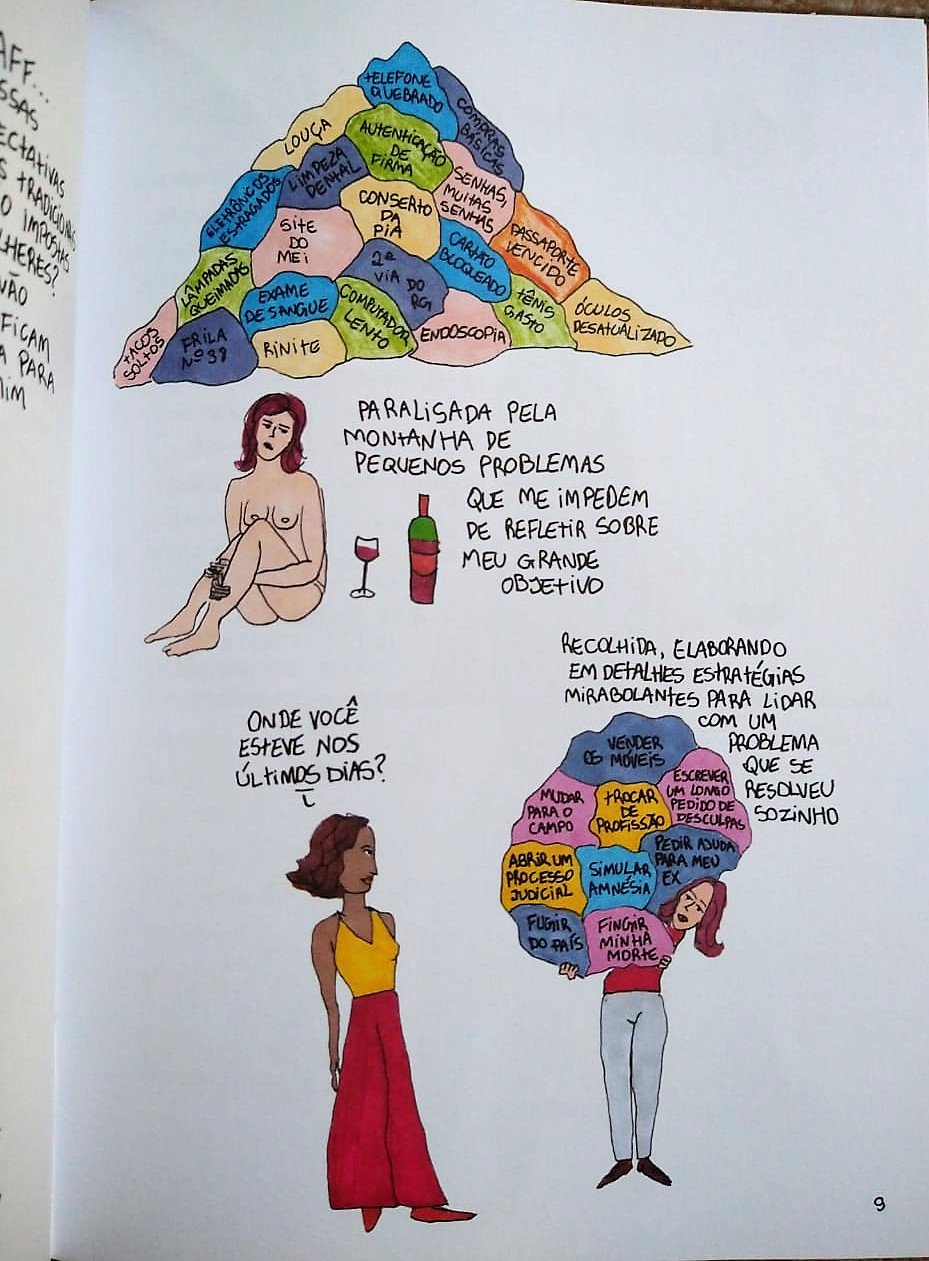 AFF...
ECTATIVAS
TRADICIONAIS
O IMPOSTAS
LHERES?
NÃO
FICAM
A PARA
MIM
TELEFONE
QUEBRADO
COMPRAS
BÁSICAS
LOUÇA
AUTENTICAÇÃO
DE
FIRMA
LIMPEZA
DENTAL
SENHAS,
MUITAS
SENHAS
ELETRÔNICOS
ESTRAGADOS
CONSERTO
DA
PIA
SITE
DO
MEI
CARTÃO
BLOQUEADO
PASSAPORTE
VENCIDO
2ª
VIA DO
RG
LÂMPADAS
QUEIMADAS
EXAME
DE SANGUE
COMPUTADOR
LENTO
TÊNIS
GASTO
ÓCULOS
DESATUALIZADO
TACOS
SOLTOS
FRILA
Nº 39
RINITE
ENDOSCOPIA
PARALISADA PELA
MONTANHA DE
PEQUENOS PROBLEMAS
QUE ME IMPEDEM
DE REFLETIR SOBRE
MEU GRANDE
OBJETIVO
ONDE VOCÊ
ESTEVE NOS
ÚLTIMOS DIAS?
RECOLHIDA, ELABORANDO
EM DETALHES ESTRATÉGIAS
MIRABOLANTES PARA LIDAR
COM UM
PROBLEMA
QUE SE
RESOLVEU
SOZINHO
VENDER
OS MÓVEIS
MUDAR
PARA O
CAMPO
TROCAR
DE
PROFISSÃO
ESCREVER
UM LONGO
PEDIDO DE
DESCULPAS
ABRIR UM
PROCESSO
JUDICIAL
SIMULAR
AMNÉSIA
PEDIR AJUDA
PARA MEU
EX
FUGIR
DO PAÍS
FINGIR
MINHA
MORTE
9